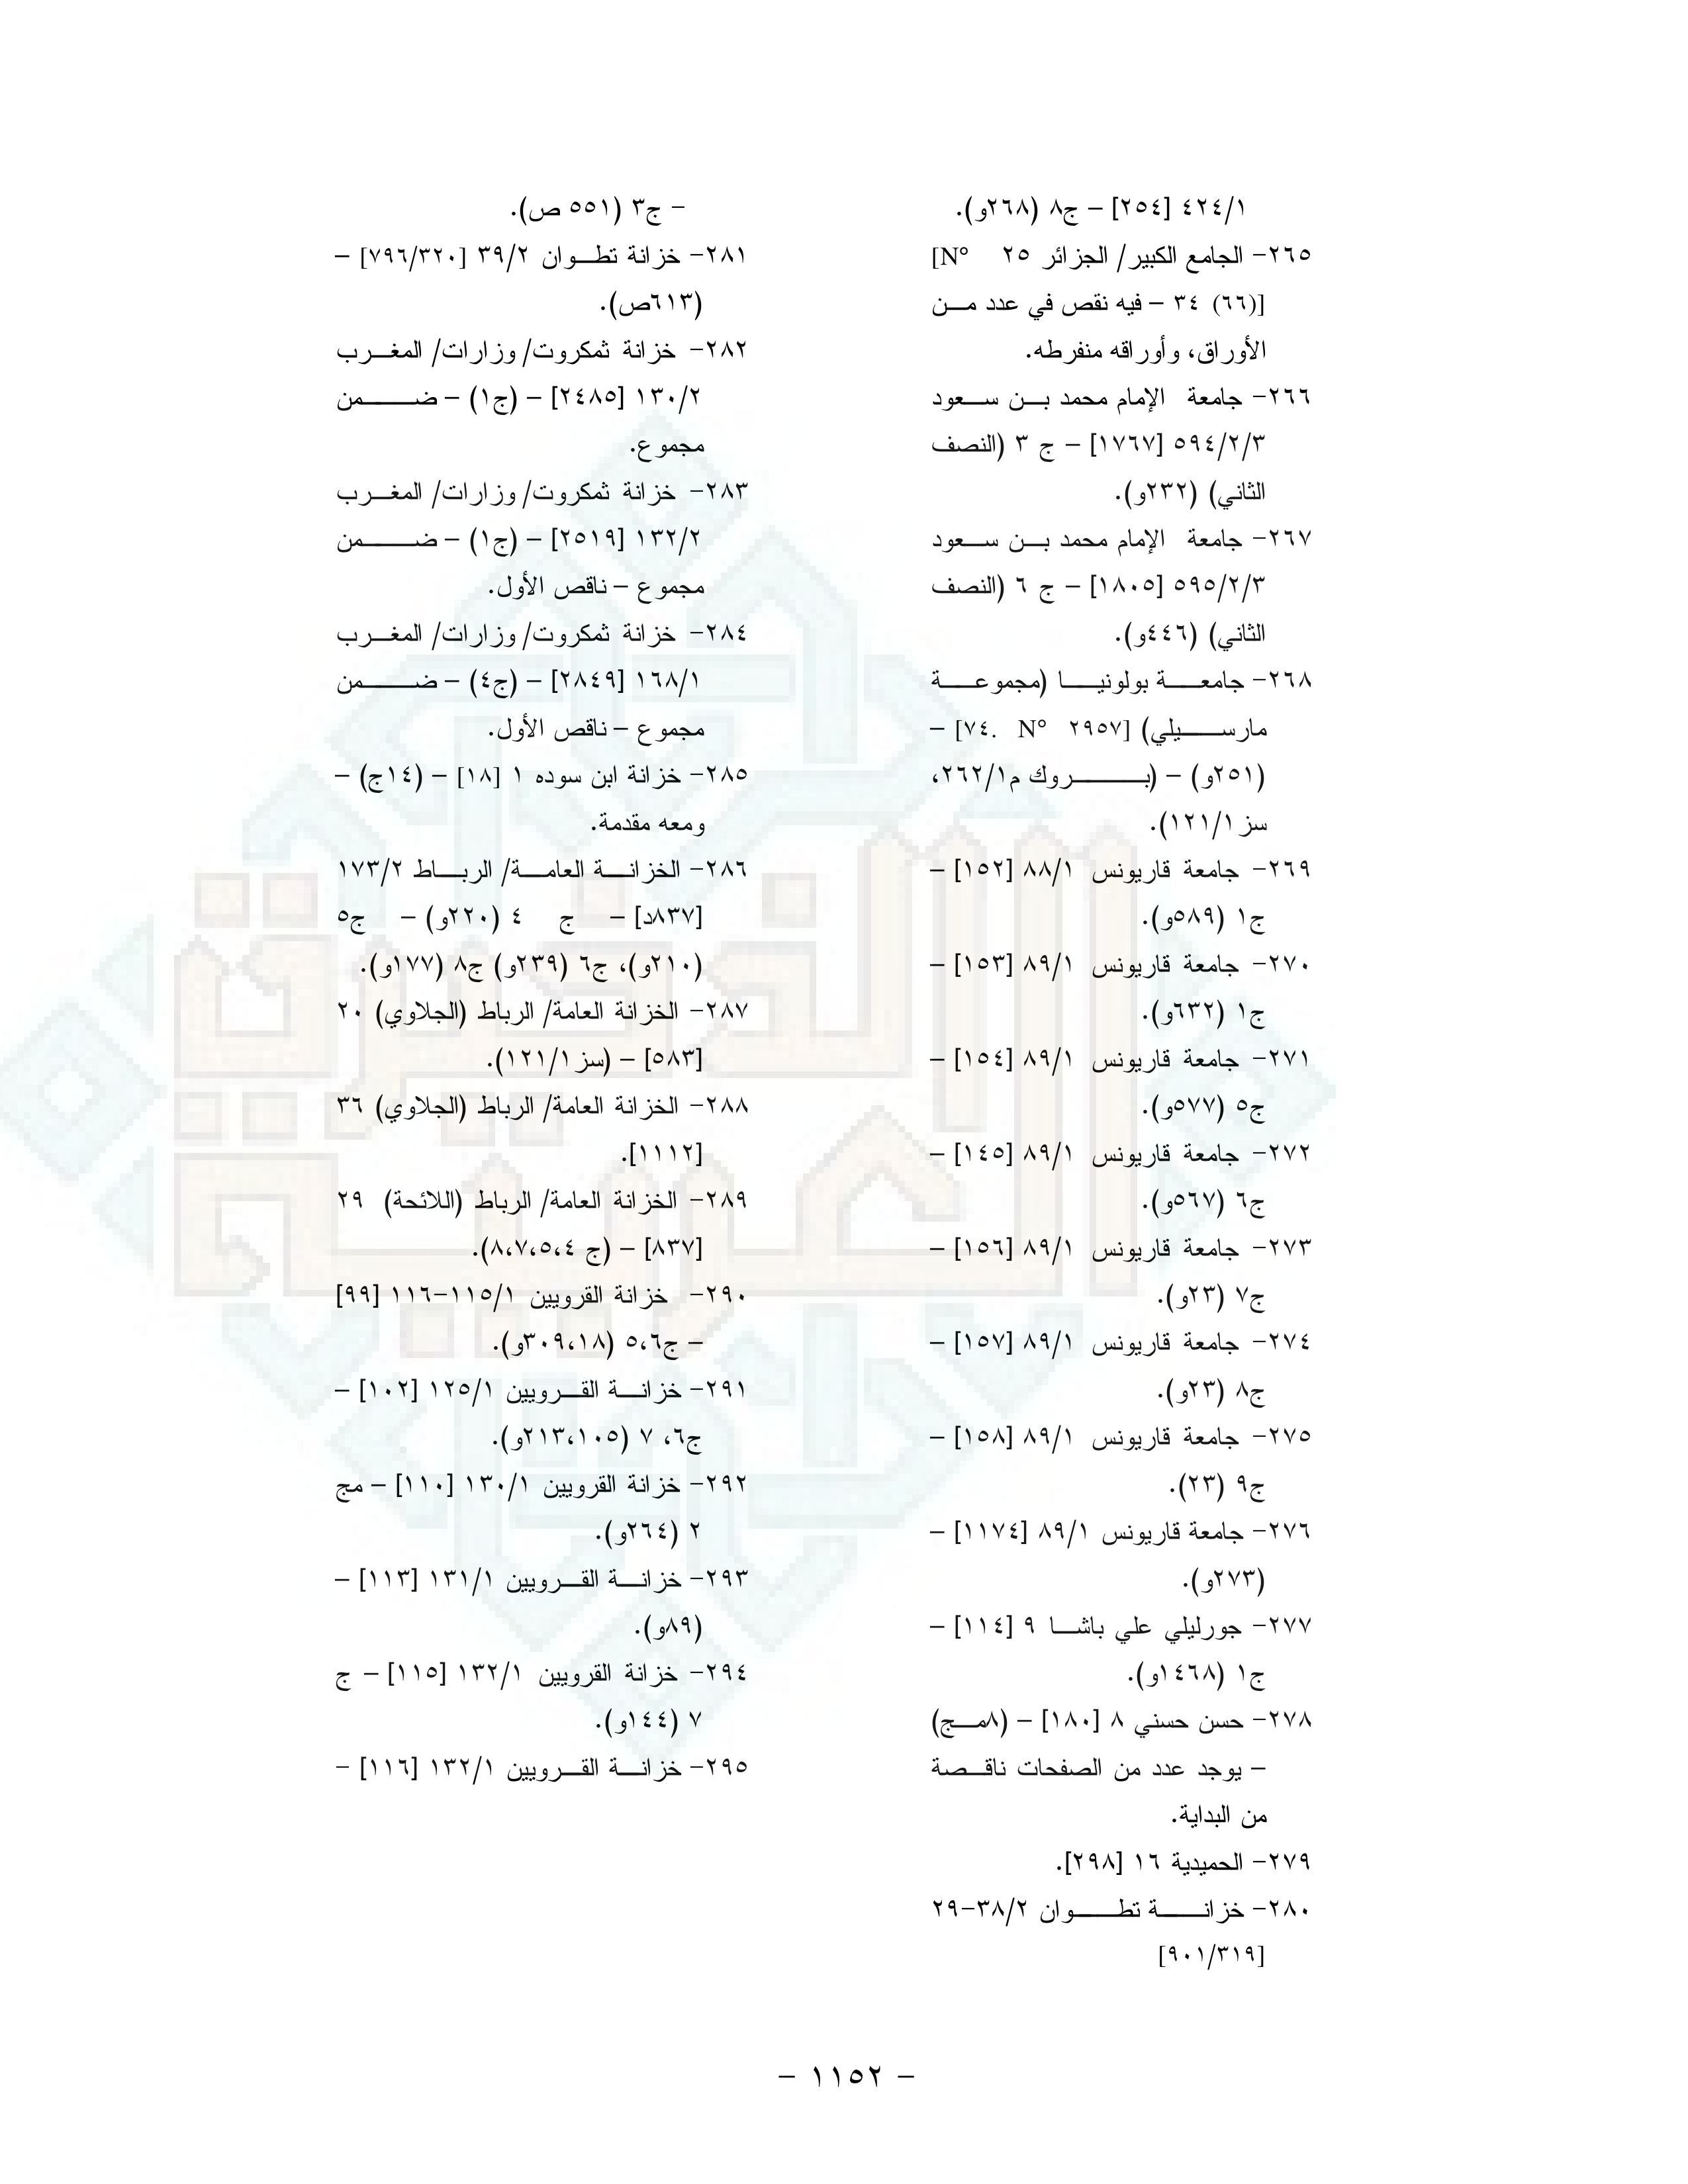 ٤٢٤/١ [٢٥٤] – ج٨ (٢٦٨و).
٢٦٥- الجامع الكبير/ الجزائر ٢٥ [N°
٣٤ (٦٦)] – فيه نقص في عدد من
الأوراق، وأوراقه منفرطه.
٢٦٦- جامعة الإمام محمد بن سعود
٥٩٤/٢/٣ [١٧٦٧] – ج ٣ (النصف
الثاني) (٢٣٢و).
٢٦٧- جامعة الإمام محمد بن سعود
٥٩٥/٢/٣ [١٨٠٥] – ج ٦ (النصف
الثاني) (٤٤٦و).
٢٦٨- جامعة بولونيا (مجموعة
مارسيلي) [٧٤. N° ٢٩٥٧] –
(٢٥١و) – (بروك م٢٦٢/١،
سز١٢١/١).
٢٦٩- جامعة قاريونس ٨٨/١ [١٥٢] –
ج١ (٥٨٩و).
٢٧٠- جامعة قاريونس ٨٩/١ [١٥٣] –
ج١ (٦٣٢و).
٢٧١- جامعة قاريونس ٨٩/١ [١٥٤] –
ج٥ (٥٧٧و).
٢٧٢- جامعة قاريونس ٨٩/١ [١٤٥] –
ج٦ (٥٦٧و).
٢٧٣- جامعة قاريونس ٨٩/١ [١٥٦] –
ج٧ (٢٣و).
٢٧٤- جامعة قاريونس ٨٩/١ [١٥٧] –
ج٨ (٢٣و).
٢٧٥- جامعة قاريونس ٨٩/١ [١٥٨] –
ج٩ (٢٣).
٢٧٦- جامعة قاريونس ٨٩/١ [١١٧٤] –
(٢٧٣و).
٢٧٧- جورليلي علي باشا ٩ [١١٤] –
ج١ (١٤٦٨و).
٢٧٨- حسن حسني ٨ [١٨٠] – (٨مج)
– يوجد عدد من الصفحات ناقصة
من البداية.
٢٧٩- الحميدية ١٦ [٢٩٨].
٢٨٠- خزانة تطوان ٣٨/٢-٢٩
[٩٠١/٣١٩]
– ج٣ (٥٥١ ص).
٢٨١- خزانة تطوان ٣٩/٢ [٧٩٦/٣٢٠] –
(٦١٣ص).
٢٨٢- خزانة ثمكروت/ وزارات/ المغرب
١٣٠/٢ [٢٤٨٥] – (ج١) – ضمن
مجموع.
٢٨٣- خزانة ثمكروت/ وزارات/ المغرب
١٣٢/٢ [٢٥١٩] – (ج١) – ضمن
مجموع – ناقص الأول.
٢٨٤- خزانة ثمكروت/ وزارات/ المغرب
١٦٨/١ [٢٨٤٩] – (ج٤) – ضمن
مجموع – ناقص الأول.
٢٨٥- خزانة ابن سوده ١ [١٨] – (١٤ج) –
ومعه مقدمة.
٢٨٦- الخزانة العامة/ الرباط ١٧٣/٢
[٨٣٧د] – ج ٤ (٢٢٠و) – ج٥
(٢١٠و)، ج٦ (٢٣٩و) ج٨ (١٧٧و).
٢٨٧- الخزانة العامة/ الرباط (الجلاوي) ٢٠
[٥٨٣] – (سز١٢١/١).
٢٨٨- الخزانة العامة/ الرباط (الجلاوي) ٣٦
[١١١٢].
٢٨٩- الخزانة العامة/ الرباط (اللائحة) ٢٩
[٨٣٧] – (ج ٨،٧،٥،٤).
٢٩٠- خزانة القرويين ١١٥/١-١١٦ [٩٩]
– ج٥،٦ (٣٠٩،١٨و).
٢٩١- خزانة القرويين ١٢٥/١ [١٠٢] –
ج٦، ٧ (٢١٣،١٠٥و).
٢٩٢- خزانة القرويين ١٣٠/١ [١١٠] – مج
٢ (٢٦٤و).
٢٩٣- خزانة القرويين ١٣١/١ [١١٣] –
(٨٩و).
٢٩٤- خزانة القرويين ١٣٢/١ [١١٥] – ج
٧ (١٤٤و).
٢٩٥- خزانة القرويين ١٣٢/١ [١١٦] –
– ١١٥٢ –
الذخيرة
العربية